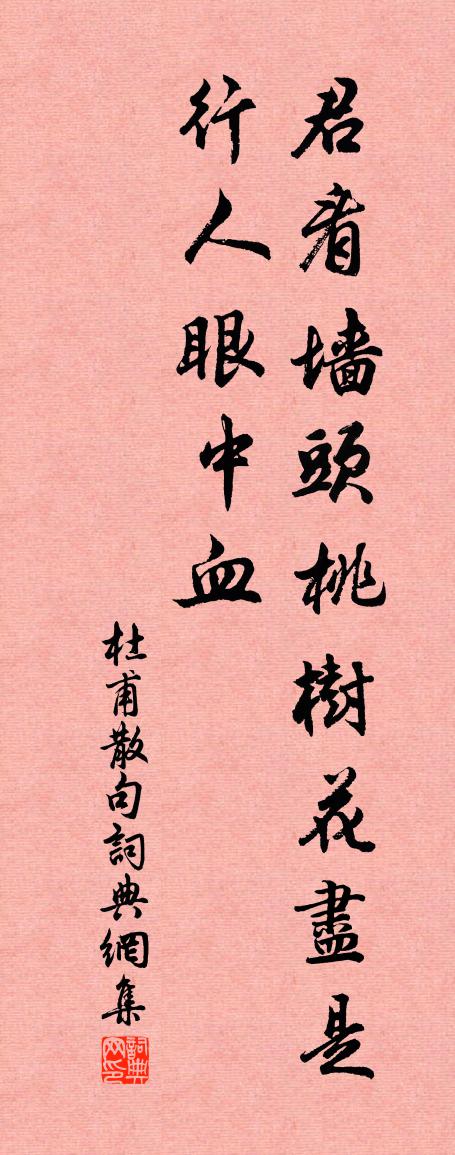 君看墻頭桃樹花盡是
行人眼中血
杜甫散句詞典網集
詞典网印